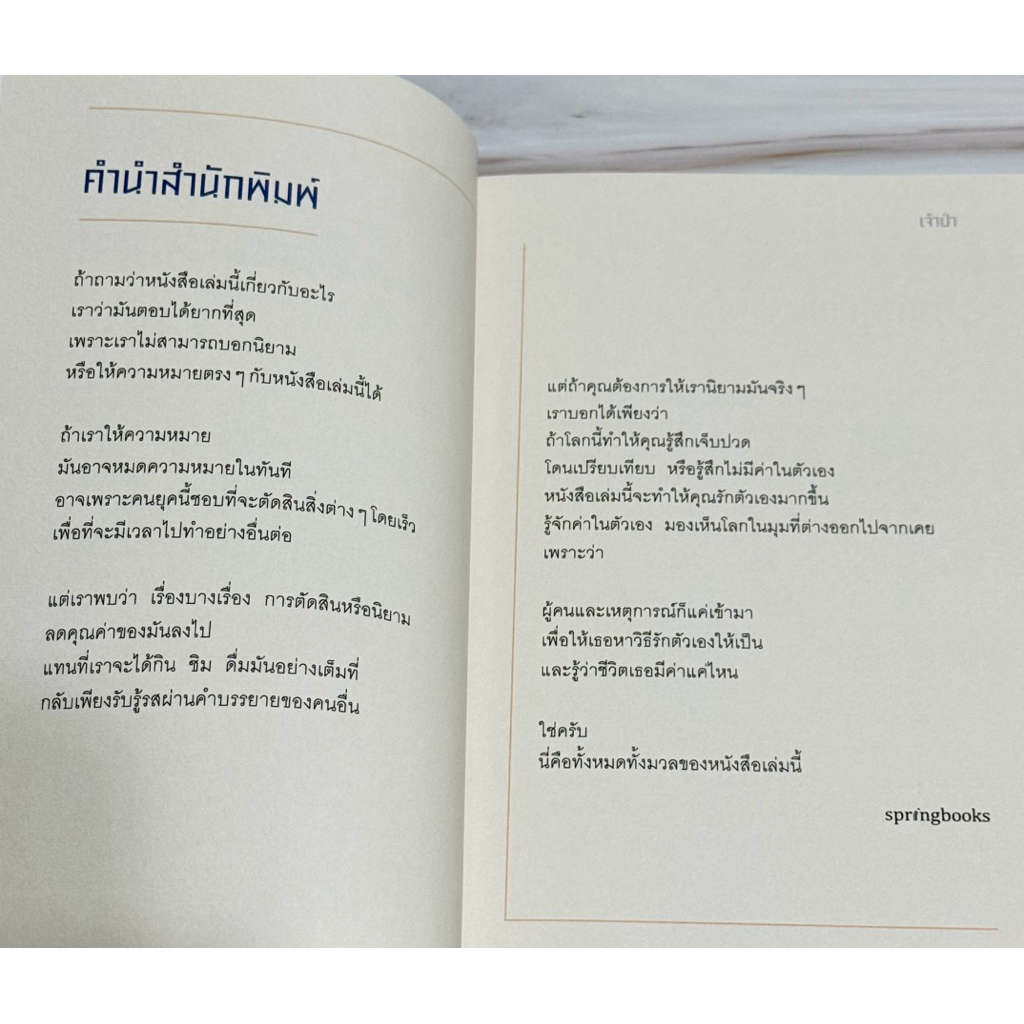 คำนำสำนักพิมพ์
ถ้าถามว่าหนังสือเล่มนี้เกี่ยวกับอะไร
เราว่ามันตอบได้ยากที่สุด
เพราะเราไม่สามารถบอกนิยาม
หรือให้ความหมายตรง ๆ กับหนังสือเล่มนี้ได้
ถ้าเราให้ความหมาย
มันอาจหมดความหมายในทันที
อาจเพราะคนยุคนี้ชอบที่จะตัดสินสิ่งต่าง ๆ โดยเร็ว
เพื่อที่จะมีเวลาไปทำอย่างอื่นต่อ
แต่เราพบว่า เรื่องบางเรื่อง การตัดสินหรือนิยาม
ลดคุณค่าของมันลงไป
แทนที่เราจะได้กิน ชิม ดื่มมันอย่างเต็มที่
กลับเพียงรับรู้รสผ่านคำบรรยายของคนอื่น
เจ้าป่า
แต่ถ้าคุณต้องการให้เรานิยามมันจริง ๆ
เราบอกได้เพียงว่า
ถ้าโลกนี้ทำให้คุณรู้สึกเจ็บปวด
โดนเปรียบเทียบ หรือรู้สึกไม่มีค่าในตัวเอง
หนังสือเล่มนี้จะทำให้คุณรักตัวเองมากขึ้น
รู้จักค่าในตัวเอง มองเห็นโลกในมุมที่ต่างออกไปจากเคย
เพราะว่า
ผู้คนและเหตุการณ์ก็แค่เข้ามา
เพื่อให้เธอหาวิธีรักตัวเองให้เป็น
และรู้ว่าชีวิตเธอมีค่าแค่ไหน
ใช่ครับ
นี่คือทั้งหมดทั้งมวลของหนังสือเล่มนี้
springbooks